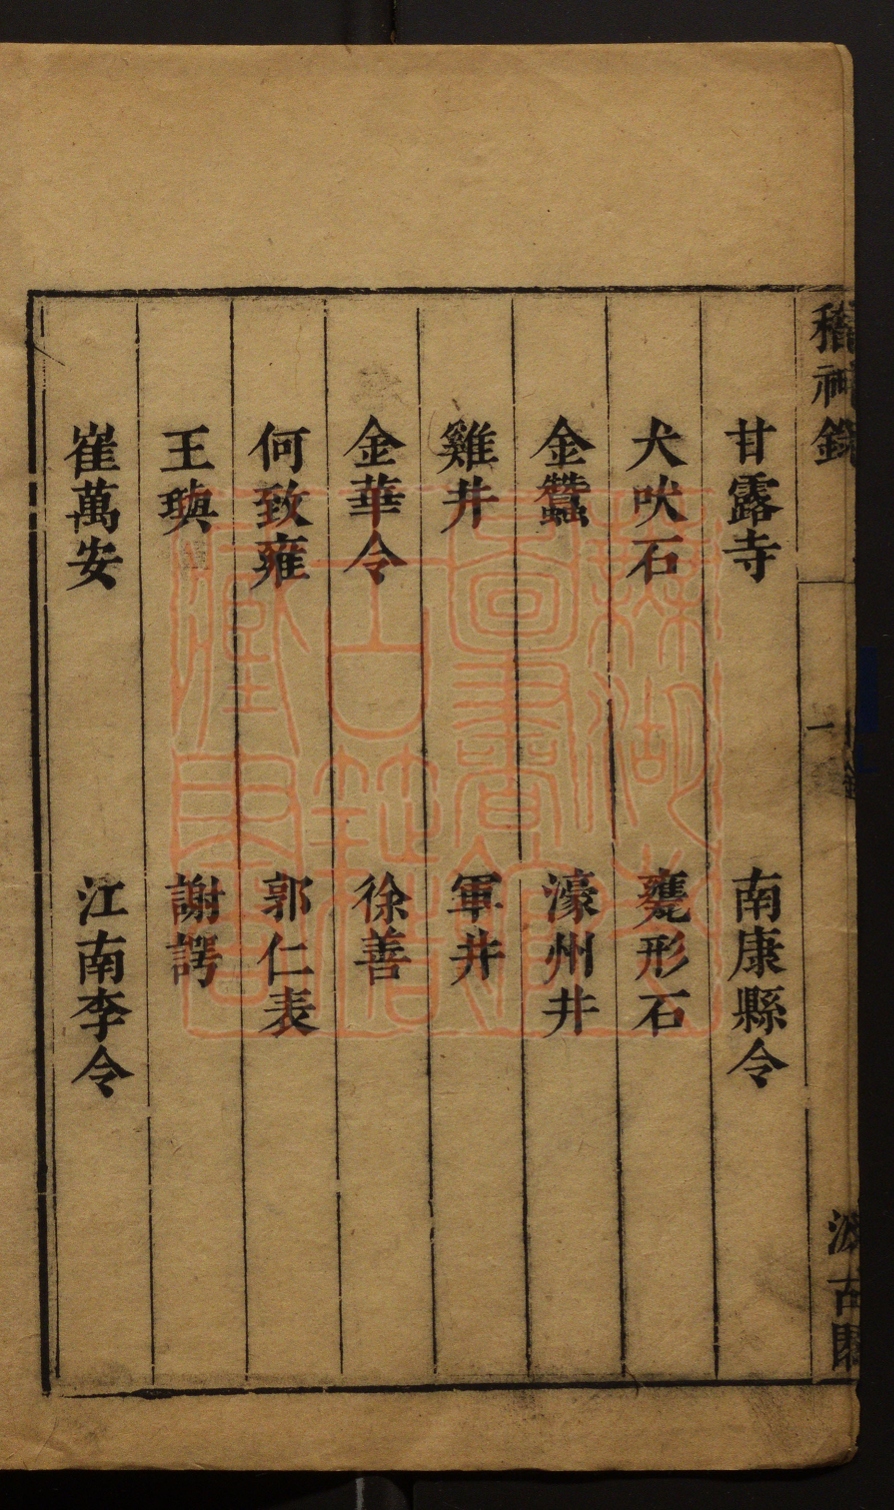 稽神錄
甘露寺　南康縣令
犬吠石　甕形石
金蠶　濠州井
雞井　軍井
金華令　徐善
何致雍　郭仁表
王璵　謝諤
崔萬安　江南李令
汲古閣